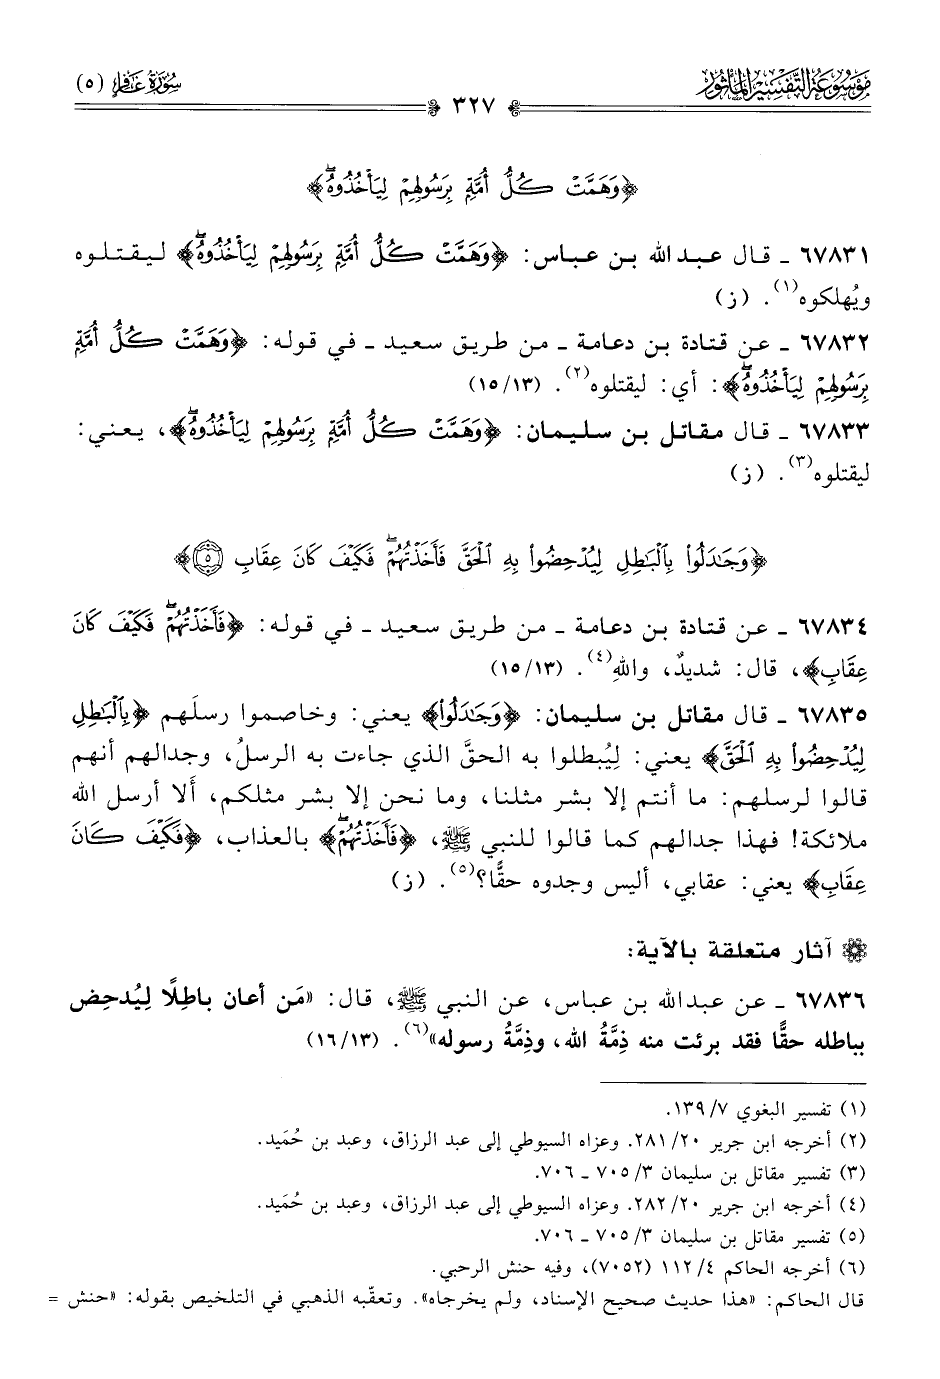 موسوعة التفسير المأثور
سورة غافر (٥)
٣٢٧
﴿وَهَمَّتْ كُلُّ أُمَّةٍ بِرَسُولِهِمْ لِيَأْخُذُوهُ﴾
٦٧٨٣١ ـ قال عبد الله بن عباس: ﴿وَهَمَّتْ كُلُّ أُمَّةٍ بِرَسُولِهِمْ لِيَأْخُذُوهُ﴾ ليقتلوه
ويُهلكوه(١). (ز)
٦٧٨٣٢ ـ عن قتادة بن دعامة ـ من طريق سعيد ـ في قوله: ﴿وَهَمَّتْ كُلُّ أُمَّةٍ
بِرَسُولِهِمْ لِيَأْخُذُوهُ﴾: أي: ليقتلوه(٢). (١٣/١٥)
٦٧٨٣٣ ـ قال مقاتل بن سليمان: ﴿وَهَمَّتْ كُلُّ أُمَّةٍ بِرَسُولِهِمْ لِيَأْخُذُوهُ﴾، يعني:
ليقتلوه(٣). (ز)
﴿وَجَادَلُوا۟ بِٱلْبَاطِلِ لِيُدْحِضُوا۟ بِهِ ٱلْحَقَّ فَأَخَذْتُهُمْ فَكَيْفَ كَانَ عِقَابِ ٥﴾
٦٧٨٣٤ ـ عن قتادة بن دعامة ـ من طريق سعيد ـ في قوله: ﴿فَأَخَذْتُهُمْ فَكَيْفَ كَانَ
عِقَابِ﴾، قال: شديدٌ، واللهِ(٤). (١٣/١٥)
٦٧٨٣٥ ـ قال مقاتل بن سليمان: ﴿وَجَادَلُوا۟﴾ يعني: وخاصموا رسلَهم ﴿بِٱلْبَاطِلِ
لِيُدْحِضُوا۟ بِهِ ٱلْحَقَّ﴾ يعني: لِيُبطلوا به الحقَّ الذي جاءت به الرسلُ، وجدالهم أنهم
قالوا لرسلهم: ما أنتم إلا بشر مثلنا، وما نحن إلا بشر مثلكم، ألا أرسل الله
ملائكة! فهذا جدالهم كما قالوا للنبي ﷺ، ﴿فَأَخَذْتُهُمْ﴾ بالعذاب، ﴿فَكَيْفَ كَانَ
عِقَابِ﴾ يعني: عقابي، أليس وجدوه حقًّا؟(٥). (ز)
آثار متعلقة بالآية:
٦٧٨٣٦ ـ عن عبد الله بن عباس، عن النبي ﷺ، قال: «مَن أعان باطِلًا لِيُدحِض
بباطله حقًّا فقد برئت منه ذِمَّةُ الله، وذِمَّةُ رسوله»(٦). (١٣/١٦)
(١) تفسير البغوي ٧/ ١٣٩.
(٢) أخرجه ابن جرير ٢٠/ ٢٨١. وعزاه السيوطي إلى عبد الرزاق، وعبد بن حُمَيد.
(٣) تفسير مقاتل بن سليمان ٣/ ٧٠٥ ـ ٧٠٦.
(٤) أخرجه ابن جرير ٢٠/ ٢٨٢. وعزاه السيوطي إلى عبد الرزاق، وعبد بن حُمَيد.
(٥) تفسير مقاتل بن سليمان ٣/ ٧٠٥ ـ ٧٠٦.
(٦) أخرجه الحاكم ٤/ ١١٢ (٧٠٥٢)، وفيه حنش الرحبي.
قال الحاكم: «هذا حديث صحيح الإسناد، ولم يخرجاه». وتعقّبه الذهبي في التلخيص بقوله: «حنش =